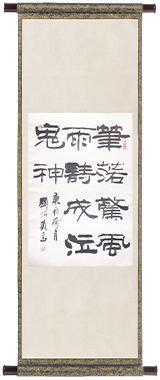 筆落驚風
雨詩成泣
鬼神